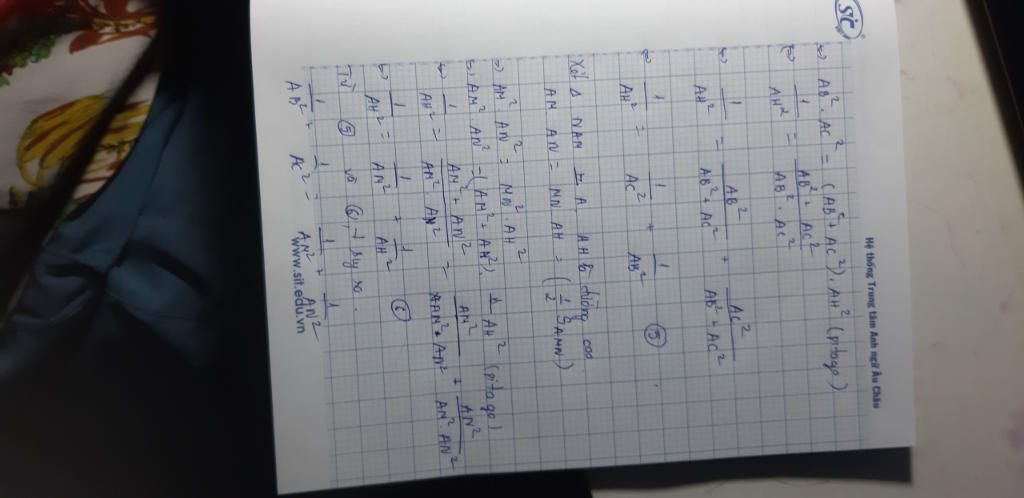 sic
Hệ thống Trung tâm Anh ngữ Âu Châu
=> AB². AC² = (AB² + AC²). AH² (pitago)
=> 1/AH² = AB² + AC²/AB². AC²
=> 1/AH² = AB²/AB² + AC² + AC²/AB² + AC²
=> 1/AH² = 1/AC² + 1/AB² (5)
Xét Δ NAM A. AH đường cao
AM. AN = MN. AH = (1/2 S AMN)
=> AM² AN² = MN². AH²
=> AM². AN² = (AM² + AN²). AH² (pitago)
=> 1/AH² = AM² + AN²/AM² AN² = AM²/AM². AN² + AN²/AM². AN²
=> 1/AH² = 1/AM² + 1/AH² (6)
Từ (5) và (6) suy ra.
1/AB² + 1/AC² = 1/AM² + 1/AN²
www.sit.edu.vn